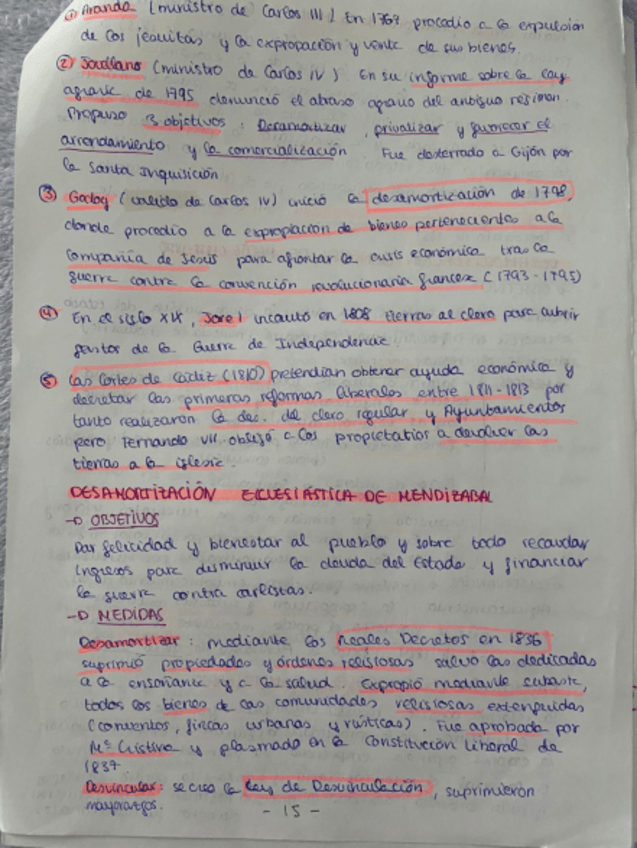 ① Aranda (ministro de Carlos III) En 1767 procedio a la expulsión
de los jesuitas y la expropacción y venta de sus bienes.
② Jovellano (ministro de Carlos IV) En su informe sobre la ley
agraria de 1795 denunció el atraso agrario del antiguo regimen.
Propuso 3 objetivos: Desamortizar, privatizar y favorecer el
arrendamiento y la comercialización Fue desterrado a Gijón por
la Santa Inquisición
③ Godoy (valido de Carlos IV) inició la desamortización de 1798,
donde procedio a la expropiación de bienes pertenecientes a la
Compañía de Jesús para afrontar la crisis económica tras la
guerra contra la convención revolucionaria francesa (1793-1795)
④ En el siglo XIX, Jose I incautó en 1808 tierras al clero para cubrir
gastos de la Guerra de Independencia
⑤ Las Cortes de Cádiz (1810) pretendían obtener ayuda económica y
decretar las primeras reformas liberales entre 1811-1813 por
tanto realizaron la des. del clero regular y Ayuntamientos
pero Fernando VII obligó a los propietarios a devolver las
tierras a la iglesia.
DESAMORTIZACIÓN ECLESIÁSTICA DE MENDIZABAL
→ OBJETIVOS
Dar felicidad y bienestar al pueblo y sobre todo recaudar
ingresos para disminuir la deuda del Estado y financiar
la guerra contra carlistas.
→ MEDIDAS
Desamortizar: mediante los Reales Decretos en 1836
suprimió propiedades y órdenes religiosas salvo las dedicadas
a la enseñanza y a la salud. Expropió mediante subasta,
todos los bienes de las comunidades religiosas extinguidas
(conventos, fincas urbanas y rústicas). Fue aprobada por
Mª Cristina y plasmado en la Constitución liberal de
1837.
Desvincular: se creo la Ley de Desvinculación, suprimieron
mayorazgos.
- 15 -